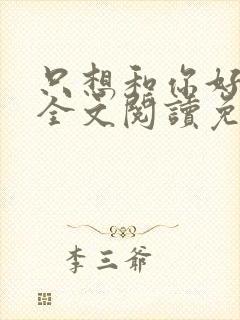 只想和你好
全文閱讀免
李三爺